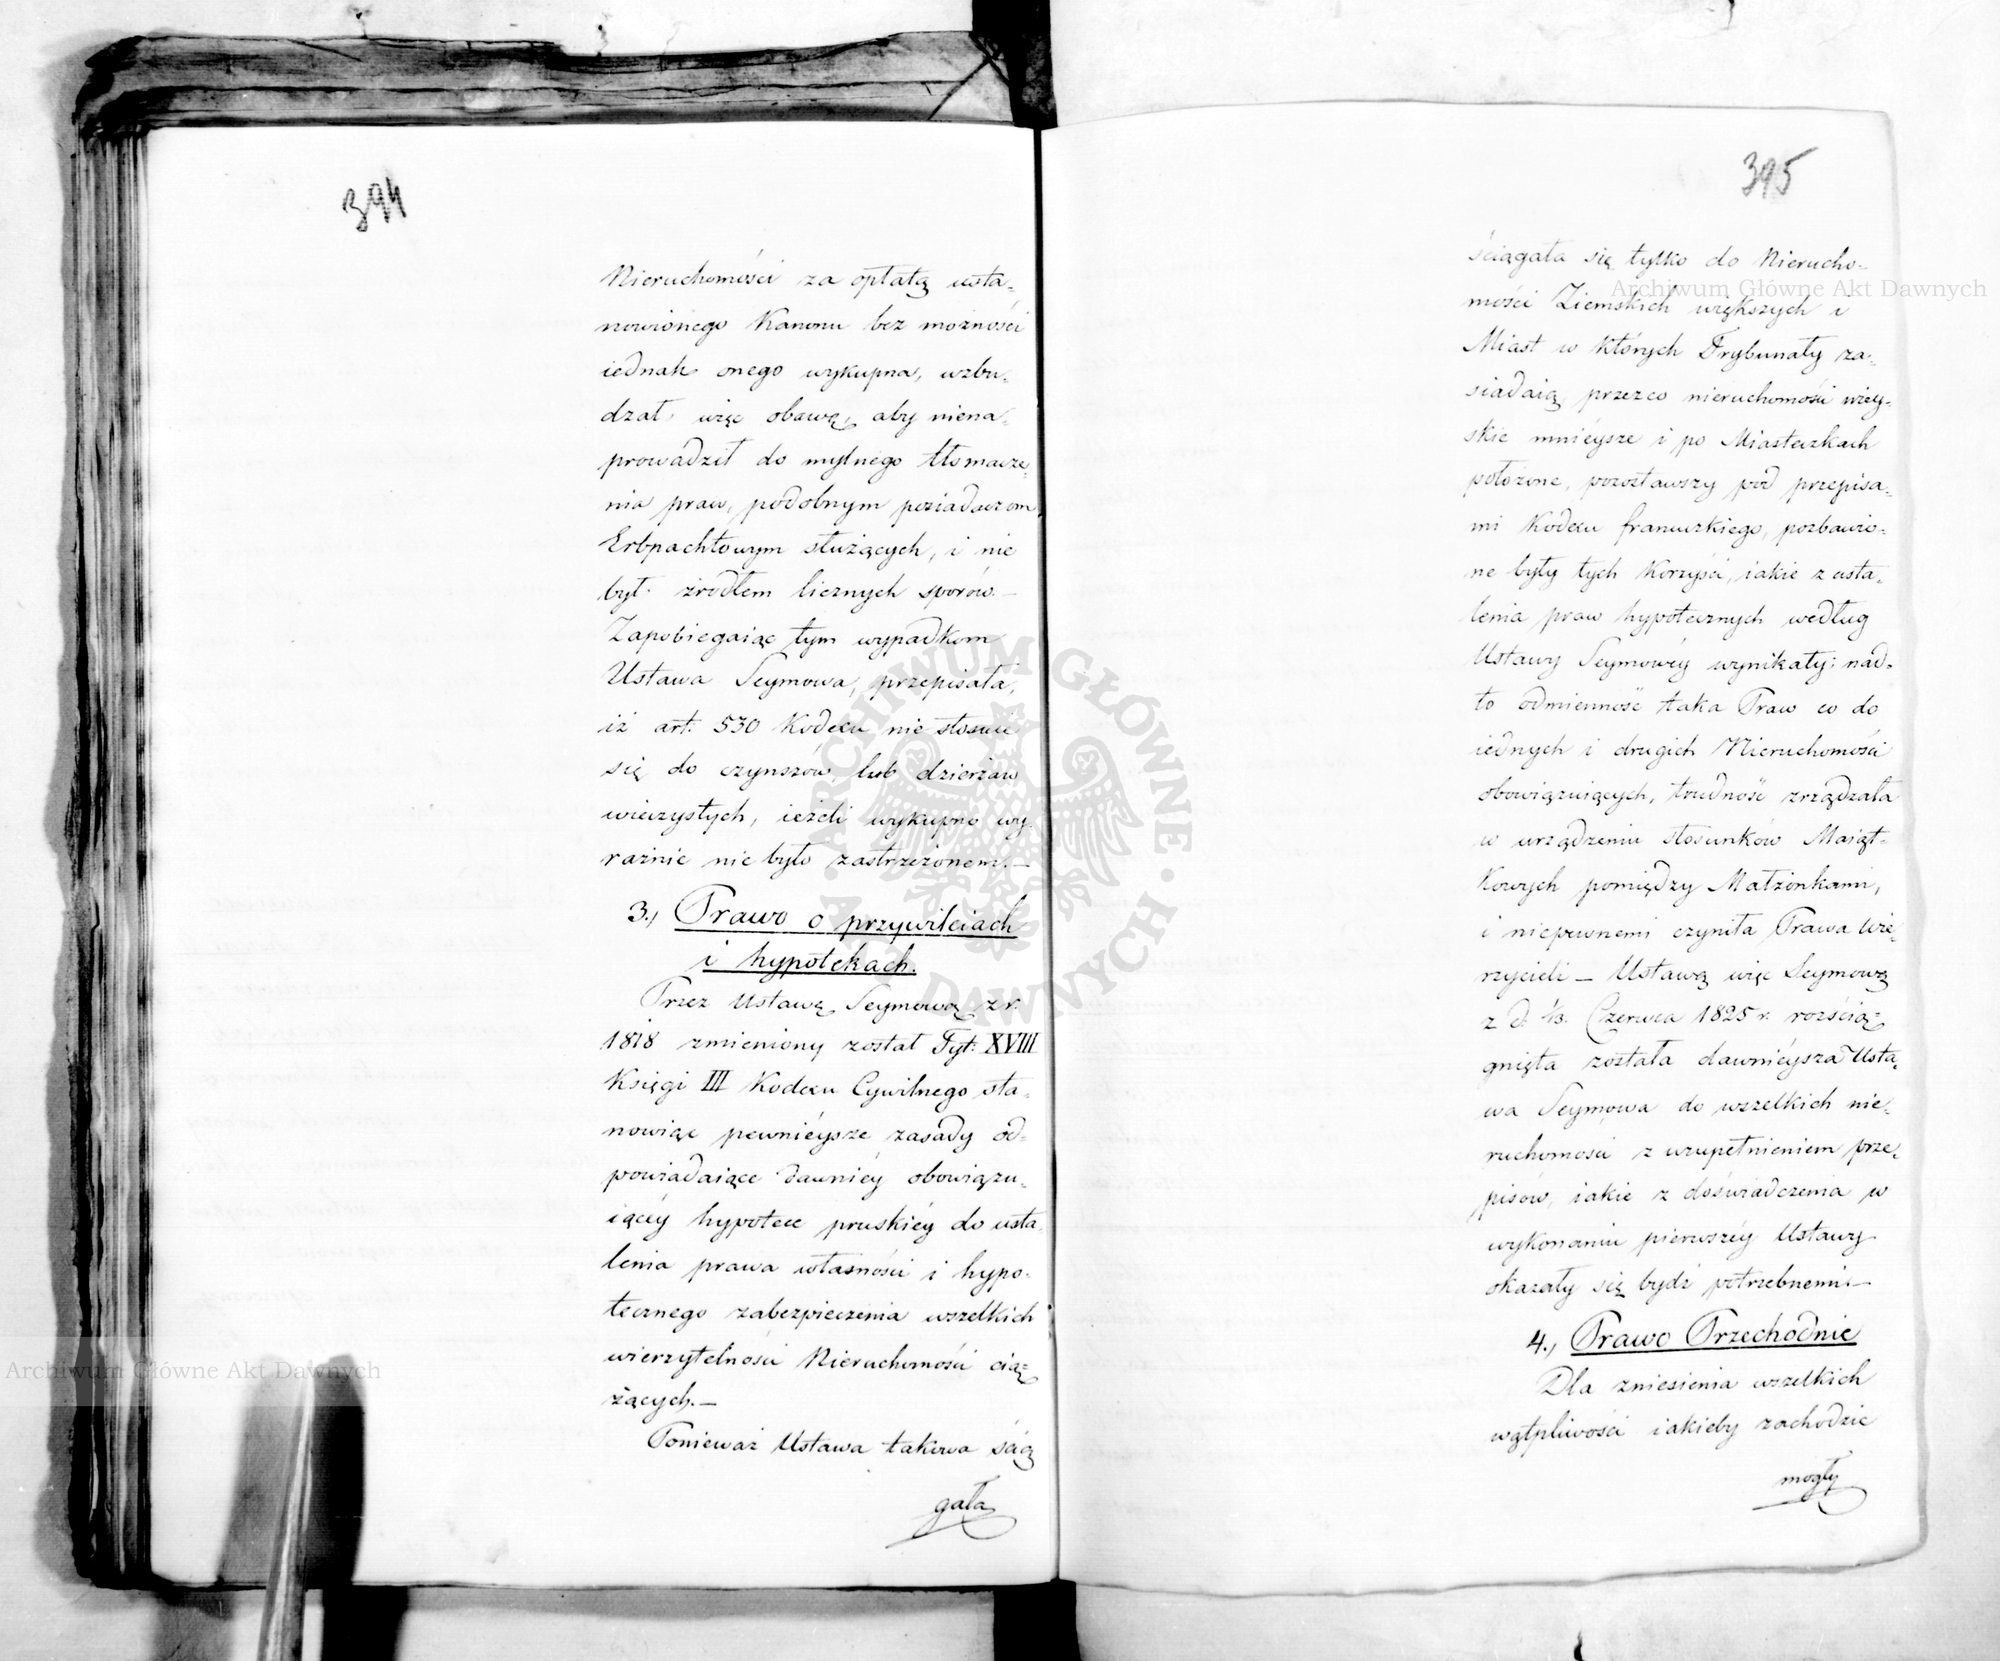 394
Nieruchomości za opłatą usta-
nowionego Kanonu bez możności
iednak onego wykupna, wzbu-
dzał więc obawę, aby niena-
prowadził do mylnego tłomacze-
nia praw, podobnym posiadaczom
Erbpachtowym służących, i nie
był źródłem licznych sporów. —
Zapobiegaiąc tym wypadkom
Ustawa Seymowa, przepisała,
iż art. 530 Kodexu nie stosuie
się do czynszów lub dzierżaw
wieczystych, ieżeli wykupno wy-
raźnie nie było zastrzeżonem. —
3., Prawo o przywileiach
i hypotekach.
Przez Ustawę Seymową z r.
1818 zmieniony został Tyt: XVIII
Księgi III Kodexu Cywilnego sta-
nowiąc pewnieysze zasady od-
powiadaiące dawniéy obowiązu-
iącéy hypotece pruskiéy do usta-
lenia prawa własności i hypo-
tecznego zabezpieczenia wszelkich
wierzytelności Nieruchomości cią-
żących. —
Ponieważ Ustawa takowa ścią
gała
395
ściągała się tylko do Nierucho-
mości Ziemskich większych i
Miast w których Trybunały za-
siadaią, przezco nieruchomości wiey-
skie mnieysze i po Miasteczkach
położone, pozostawszy pod przepisa-
mi Kodexu francuzkiego, pozbawio-
ne były tych Korzyści, iakie z usta-
lenia praw hypotecznych według
Ustawy Seymowéy wynikały; nad-
to odmienność taka Praw co do
iednych i drugich Nieruchomości
obowiązuiących, trudność zrządzała
w urządzeniu stosunków Maiąt-
kowych pomiędzy Małżonkami,
i niepewnemi czyniła Prawa Wie-
rzycieli — Ustawą więc Seymową
z d. 1/13. Czerwca 1825 r. rozścią-
gnięta została dawnieysza Usta-
wa Seymowa do wszelkich nie-
ruchomości z uzupełnieniem prze-
pisów, iakie z doświadczenia w
wykonaniu pierwszéy Ustawy
okazały się bydź potrzebnemi —
4., Prawo Przechodnie
Dla zniesienia wszelkich
wątpliwości iakieby zachodzić
mogły
Archiwum Główne Akt Dawnych
Archiwum Główne Akt Dawnych
ARCHIWUM GŁÓWNE AKT DAWNYCH